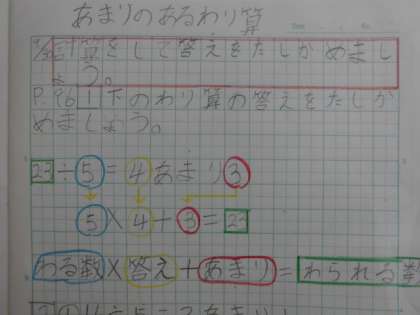 あまりのあるわり算
計算をして答えをたしかめまし
ょう。
P.96 1 下のわり算の答えをたしか
めましょう。
23÷5=4あまり3
5×4+3=23
わる数×答え+あまり=わられる数